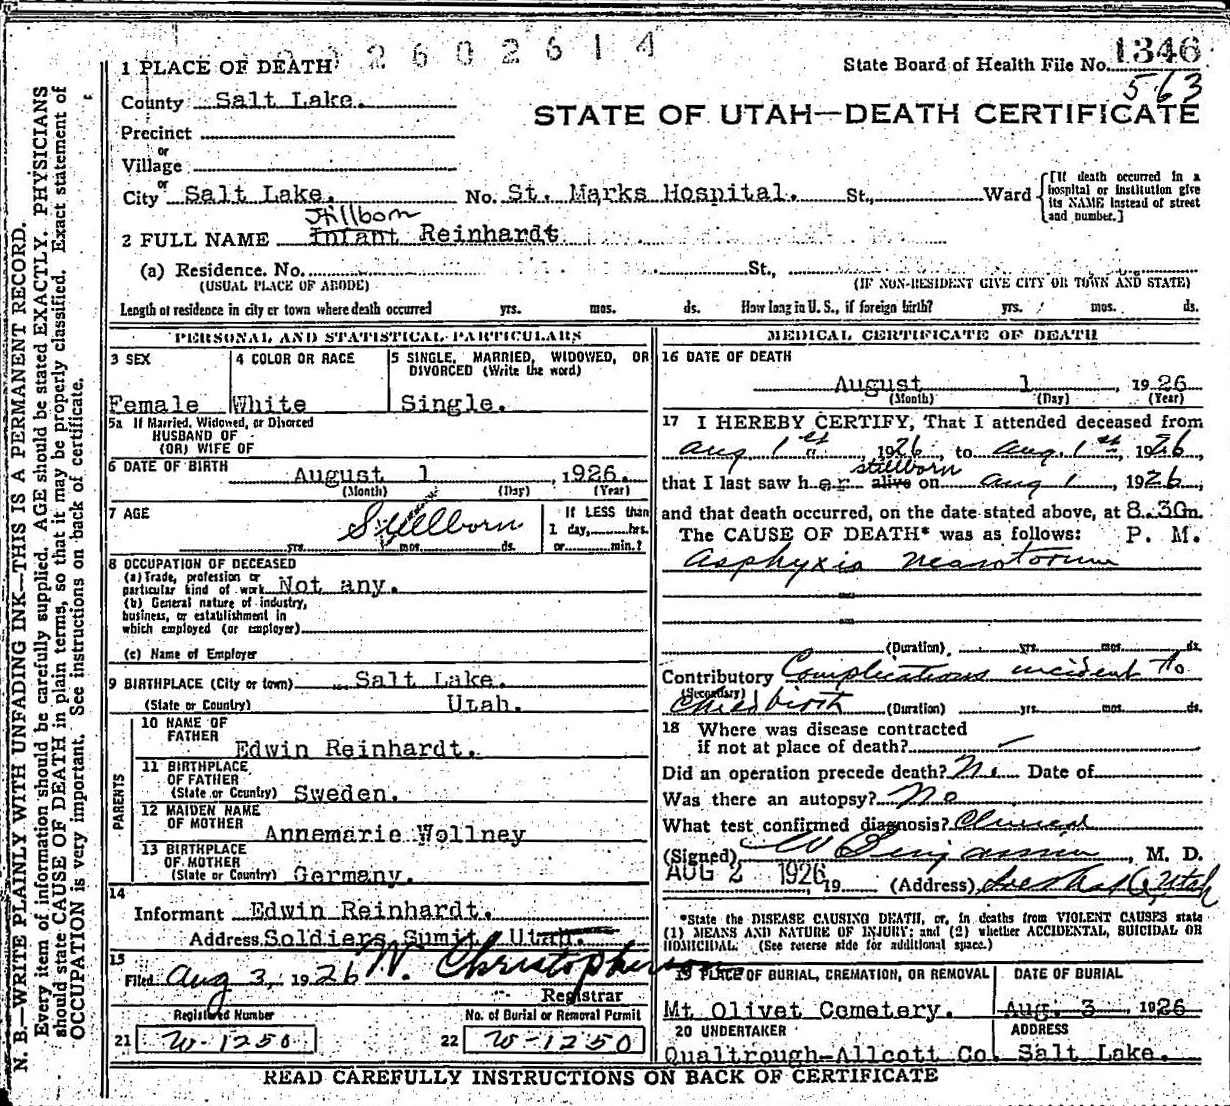 2602614
1 PLACE OF DEATH
State Board of Health File No. 1346
563
County Salt Lake.
STATE OF UTAH—DEATH CERTIFICATE
Precinct
or
Village
or
City Salt Lake. No. St. Marks Hospital. St., Ward [If death occurred in a hospital or institution give its NAME instead of street and number.]
Stillborn
2 FULL NAME Infant Reinhardt
(a) Residence. No. St.,
(USUAL PLACE OF ABODE) (IF NON-RESIDENT GIVE CITY OR TOWN AND STATE)
Length of residence in city or town where death occurred yrs. mos. ds. How long in U. S., if foreign birth? yrs. mos. ds.
PERSONAL AND STATISTICAL PARTICULARS
3 SEX
Female
4 COLOR OR RACE
White
5 SINGLE, MARRIED, WIDOWED, OR
DIVORCED (Write the word)
Single.
5a If Married, Widowed, or Divorced
HUSBAND OF
(OR) WIFE OF
6 DATE OF BIRTH
August 1, 1926.
(Month) (Day) (Year)
7 AGE
Stillborn
yrs. mos. ds.
If LESS than
1 day, hrs.
or min.?
8 OCCUPATION OF DECEASED
(a) Trade, profession or
particular kind of work Not any.
(b) General nature of industry,
business, or establishment in
which employed (or employer)
(c) Name of Employer
9 BIRTHPLACE (City or town) Salt Lake.
(State or Country) Utah.
PARENTS
10 NAME OF
FATHER
Edwin Reinhardt.
11 BIRTHPLACE
OF FATHER
(State or Country) Sweden.
12 MAIDEN NAME
OF MOTHER
Annemarie Wollney
13 BIRTHPLACE
OF MOTHER
(State or Country) Germany.
14
Informant Edwin Reinhardt.
Address Soldiers Sumit, Utah.
15
Filed Aug 3, 1926 W. Christopherson
Registrar
Registered Number
21 W-1250
No. of Burial or Removal Permit
22 W-1250
MEDICAL CERTIFICATE OF DEATH
16 DATE OF DEATH
August 1, 1926
(Month) (Day) (Year)
17 I HEREBY CERTIFY, That I attended deceased from
Aug 1st, 1926, to Aug. 1st, 1926,
stillborn
that I last saw her alive on Aug 1, 1926,
and that death occurred, on the date stated above, at 8.30m
The CAUSE OF DEATH* was as follows: P. M.
Asphyxia neanotorum
(Duration) yrs. mos. ds.
Contributory Complications incident to
(Secondary)
Childbirth (Duration) yrs. mos. ds.
18 Where was disease contracted
if not at place of death?
Did an operation precede death? No Date of
Was there an autopsy? No
What test confirmed diagnosis? Clinical
(Signed) W Benjamin, M. D.
AUG 2 1926 19 (Address) Utah
*State the DISEASE CAUSING DEATH, or, in deaths from VIOLENT CAUSES state
(1) MEANS AND NATURE OF INJURY; and (2) whether ACCIDENTAL, SUICIDAL OR
HOMICIDAL. (See reverse side for additional space.)
19 PLACE OF BURIAL, CREMATION, OR REMOVAL
Mt Olivet Cemetery.
DATE OF BURIAL
Aug. 3, 1926
20 UNDERTAKER
Qualtrough-Allcott Co.
ADDRESS
Salt Lake.
READ CAREFULLY INSTRUCTIONS ON BACK OF CERTIFICATE
N. B.—WRITE PLAINLY WITH UNFADING INK—THIS IS A PERMANENT RECORD.
Every item of information should be carefully supplied. AGE should be stated EXACTLY. PHYSICIANS
should state CAUSE OF DEATH in plain terms, so that it may be properly classified. Exact statement of
OCCUPATION is very important. See instructions on back of certificate.